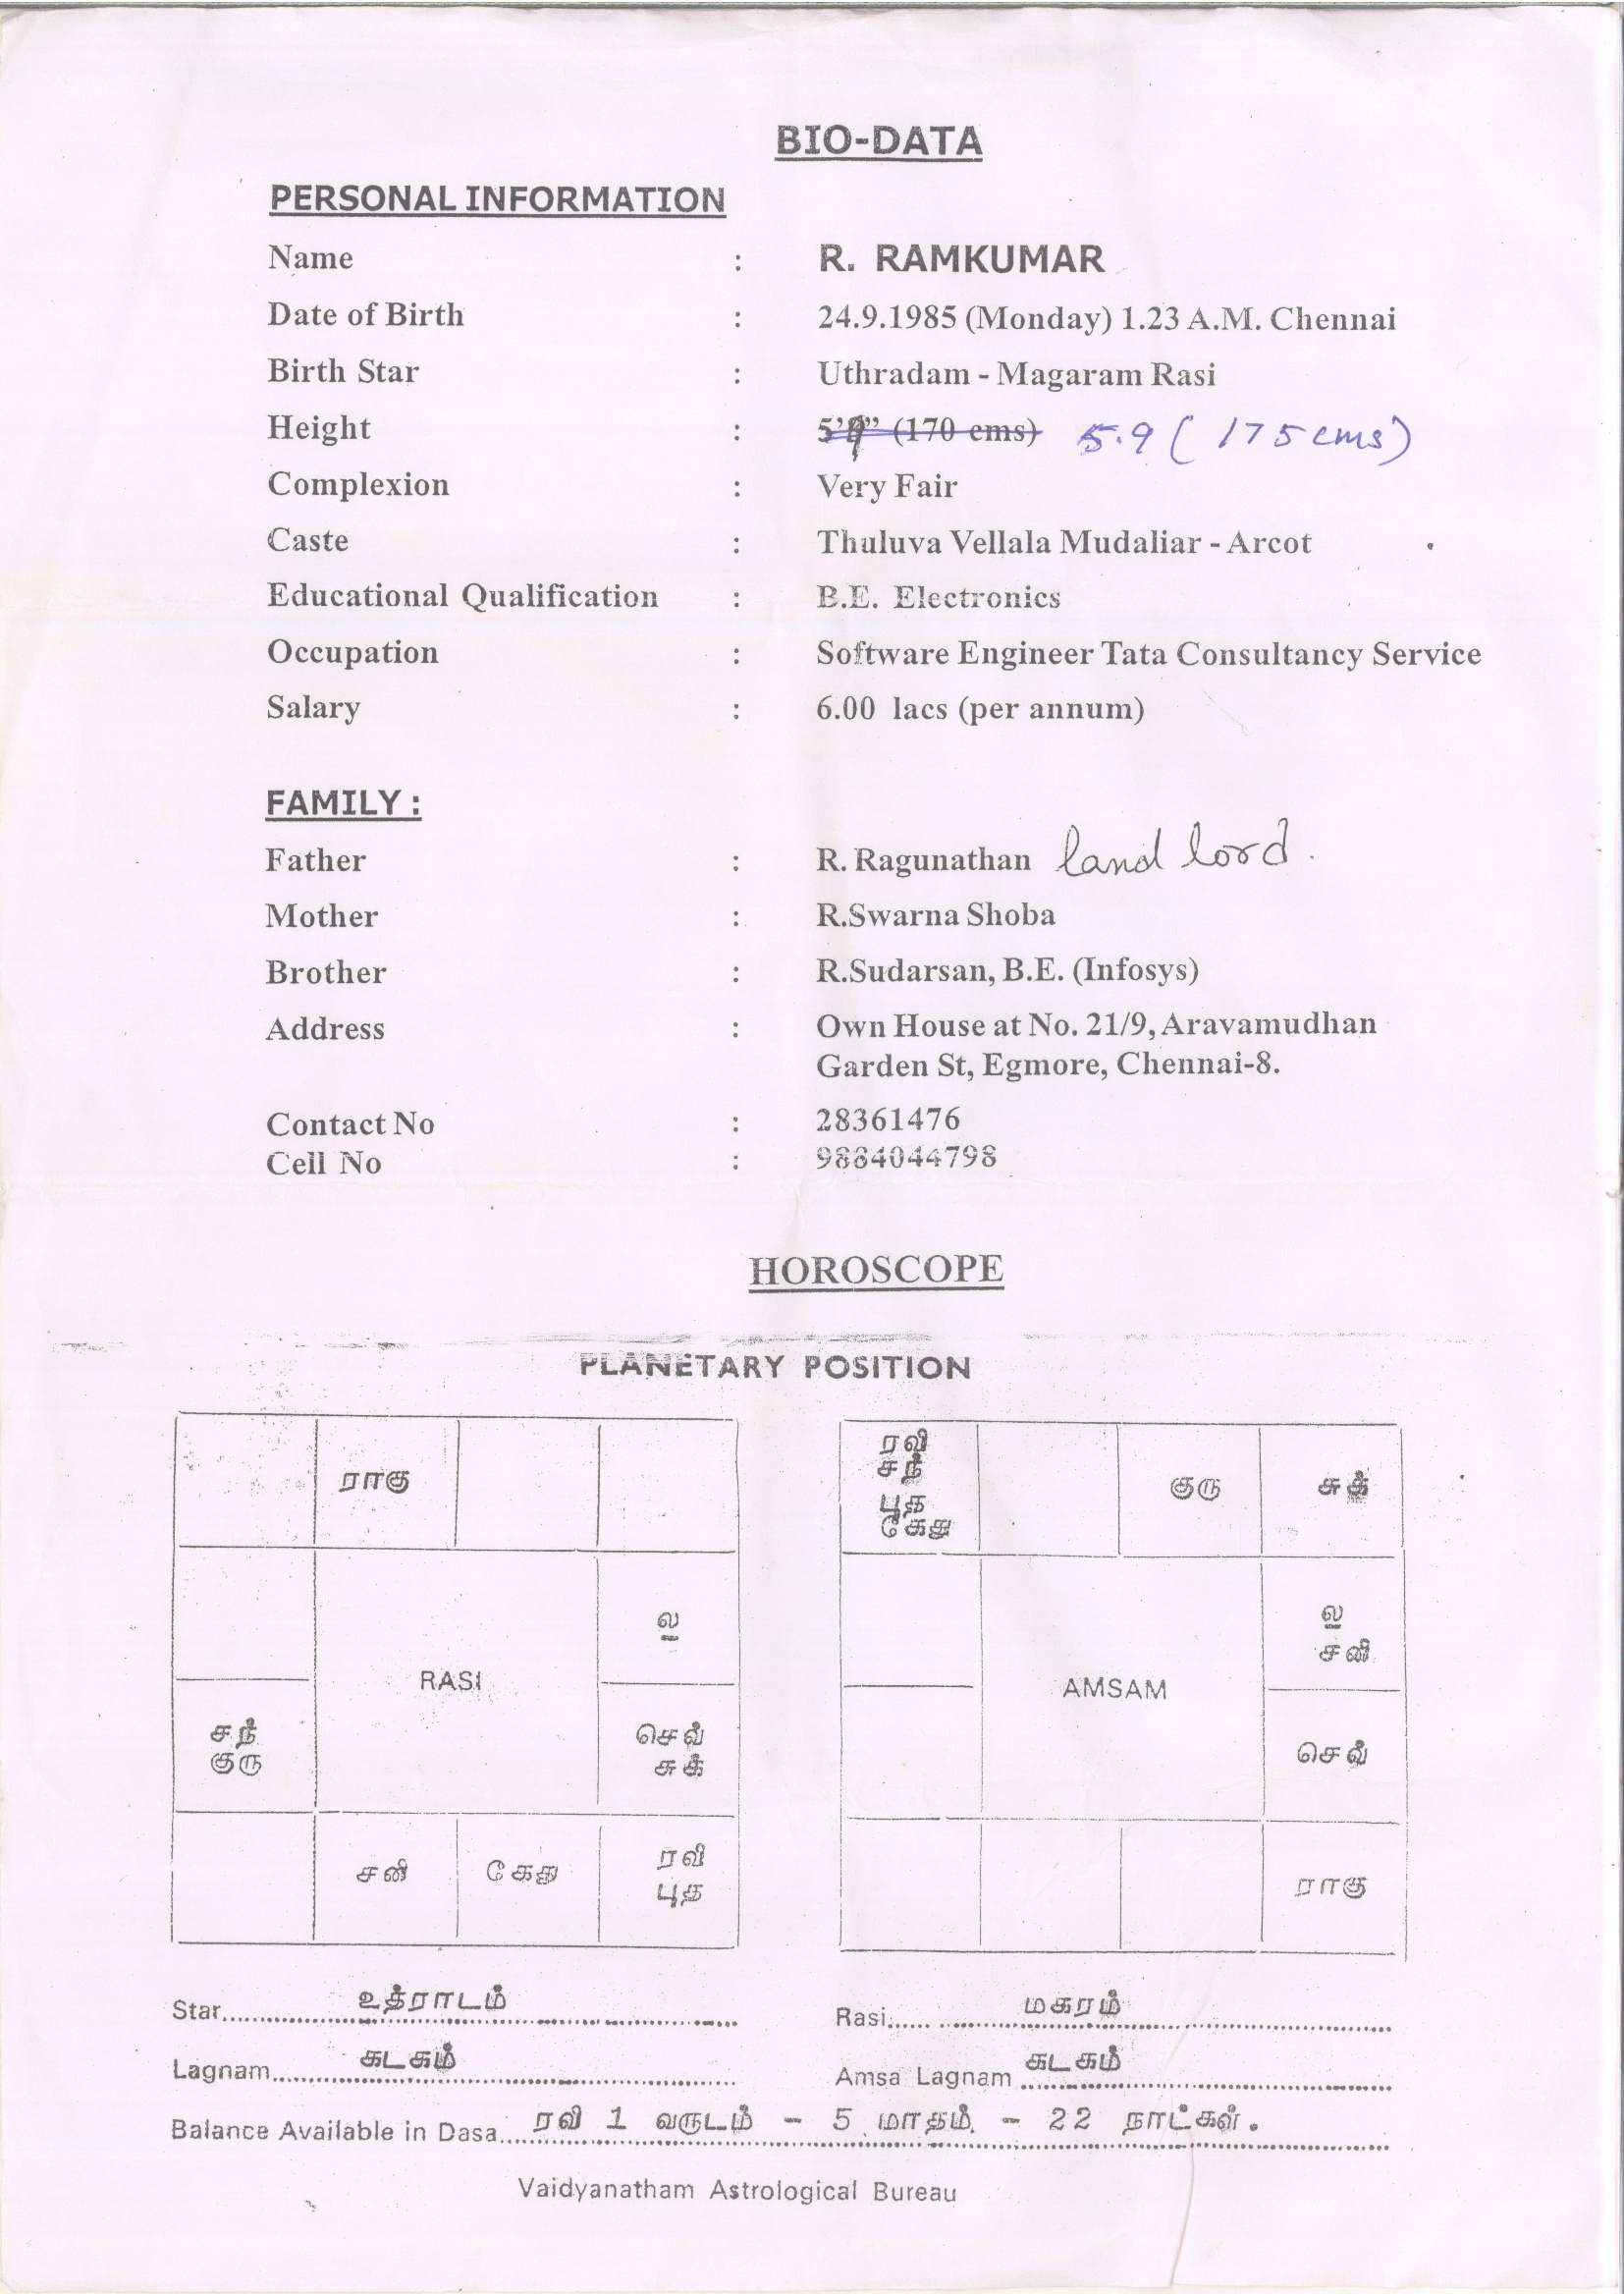 BIO-DATA
PERSONAL INFORMATION
Name : R. RAMKUMAR
Date of Birth : 24.9.1985 (Monday) 1.23 A.M. Chennai
Birth Star : Uthradam - Magaram Rasi
Height : (170 cms) 5.9 ( 175 cms)
Complexion : Very Fair
Caste : Thuluva Vellala Mudaliar - Arcot
Educational Qualification : B.E. Electronics
Occupation : Software Engineer Tata Consultancy Service
Salary : 6.00 lacs (per annum)
FAMILY :
Father : R. Ragunathan land lord.
Mother : R.Swarna Shoba
Brother : R.Sudarsan, B.E. (Infosys)
Address : Own House at No. 21/9, Aravamudhan
Garden St, Egmore, Chennai-8.
Contact No : 28361476
Cell No : 9884044798
HOROSCOPE
PLANETARY POSITION
ராகு
ல
RASI
சந்
குரு
செவ்
சுக்
சனி கேது ரவி
புத
ரவி
சந்
புத
கேது
குரு சுக்
ல
சனி
AMSAM
செவ்
ராகு
Star உத்ராடம் Rasi மகரம்
Lagnam கடகம் Amsa Lagnam கடகம்
Balance Available in Dasa ரவி 1 வருடம் - 5 மாதம் - 22 நாட்கள்.
Vaidyanatham Astrological Bureau